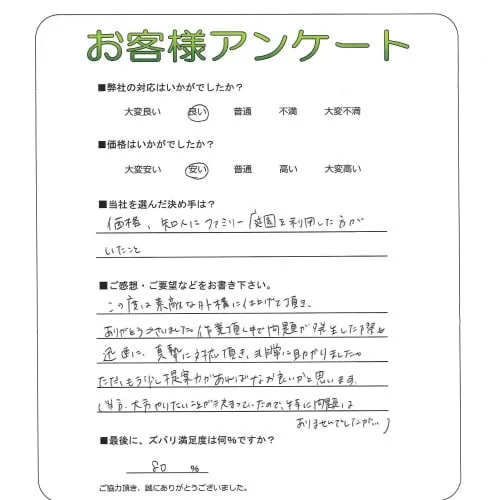 お客様アンケート
■弊社の対応はいかがでしたか?
大変良い 良い 普通 不満 大変不満
■価格はいかがでしたか?
大変安い 安い 普通 高い 大変高い
■当社を選んだ決め手は?
価格、知人にファミリー庭園を利用した方が
いたこと
■ご感想・ご要望などをお書き下さい。
この度は素敵な外構に仕上げて頂き、
ありがとうございました。作業頂く中で問題が発生した際も
迅速に、真摯に対応頂き、非常に助かりました。
ただ、もう少し提案力があればなお良いかと思います。
(当方、大方やりたいことが決まっていたので、特に問題は
ありませんでしたが…)
■最後に、ズバリ満足度は何%ですか?
80 %
ご協力頂き、誠にありがとうございました。